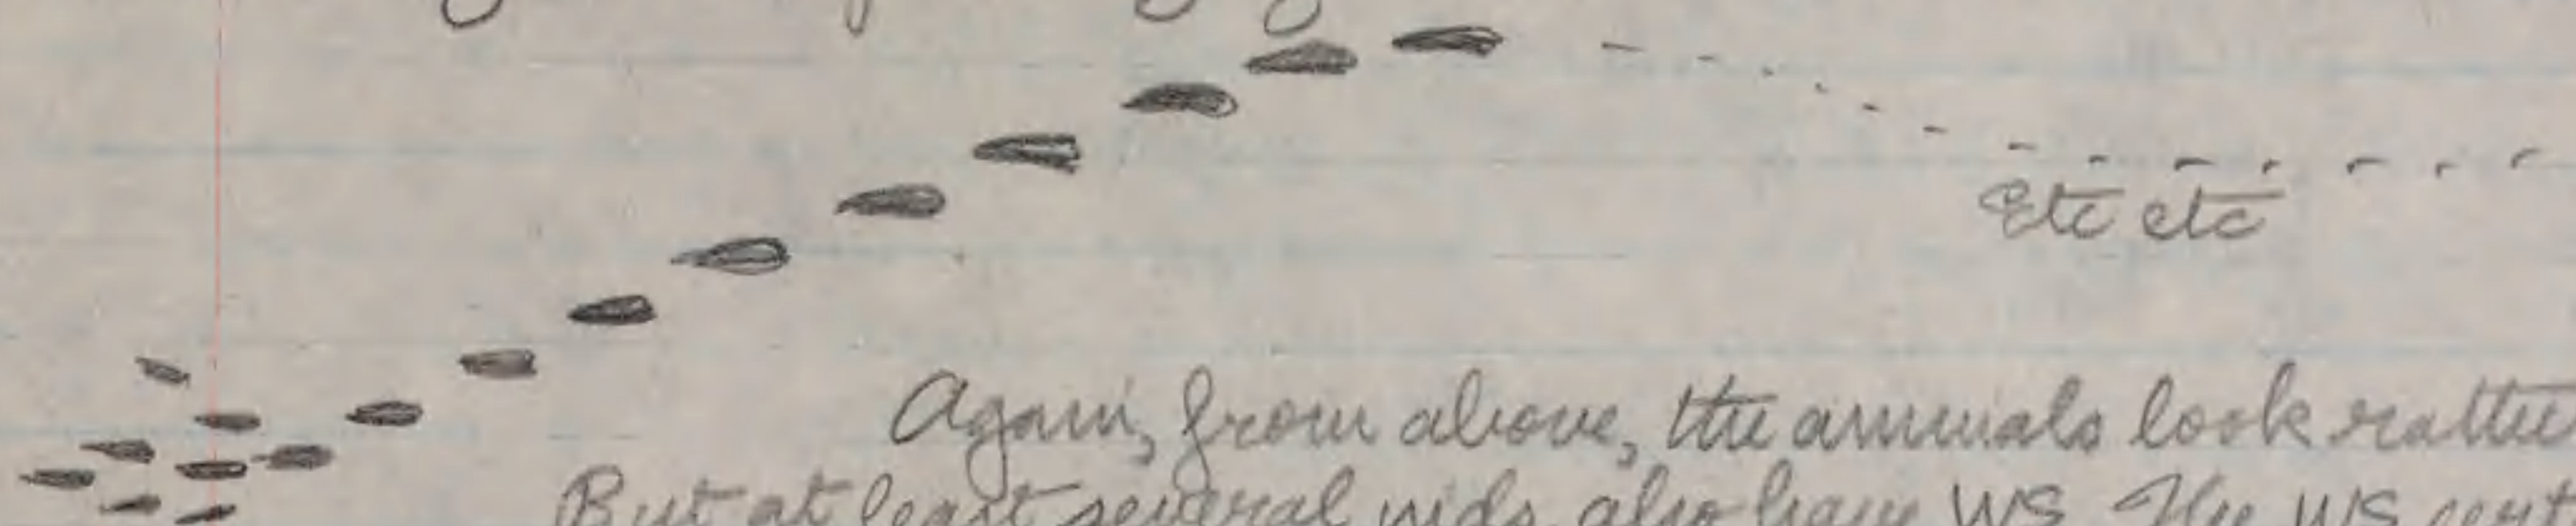 Etc etc
Again, from above, the animals look rather
But at least several inds. also have WS. The WS cert